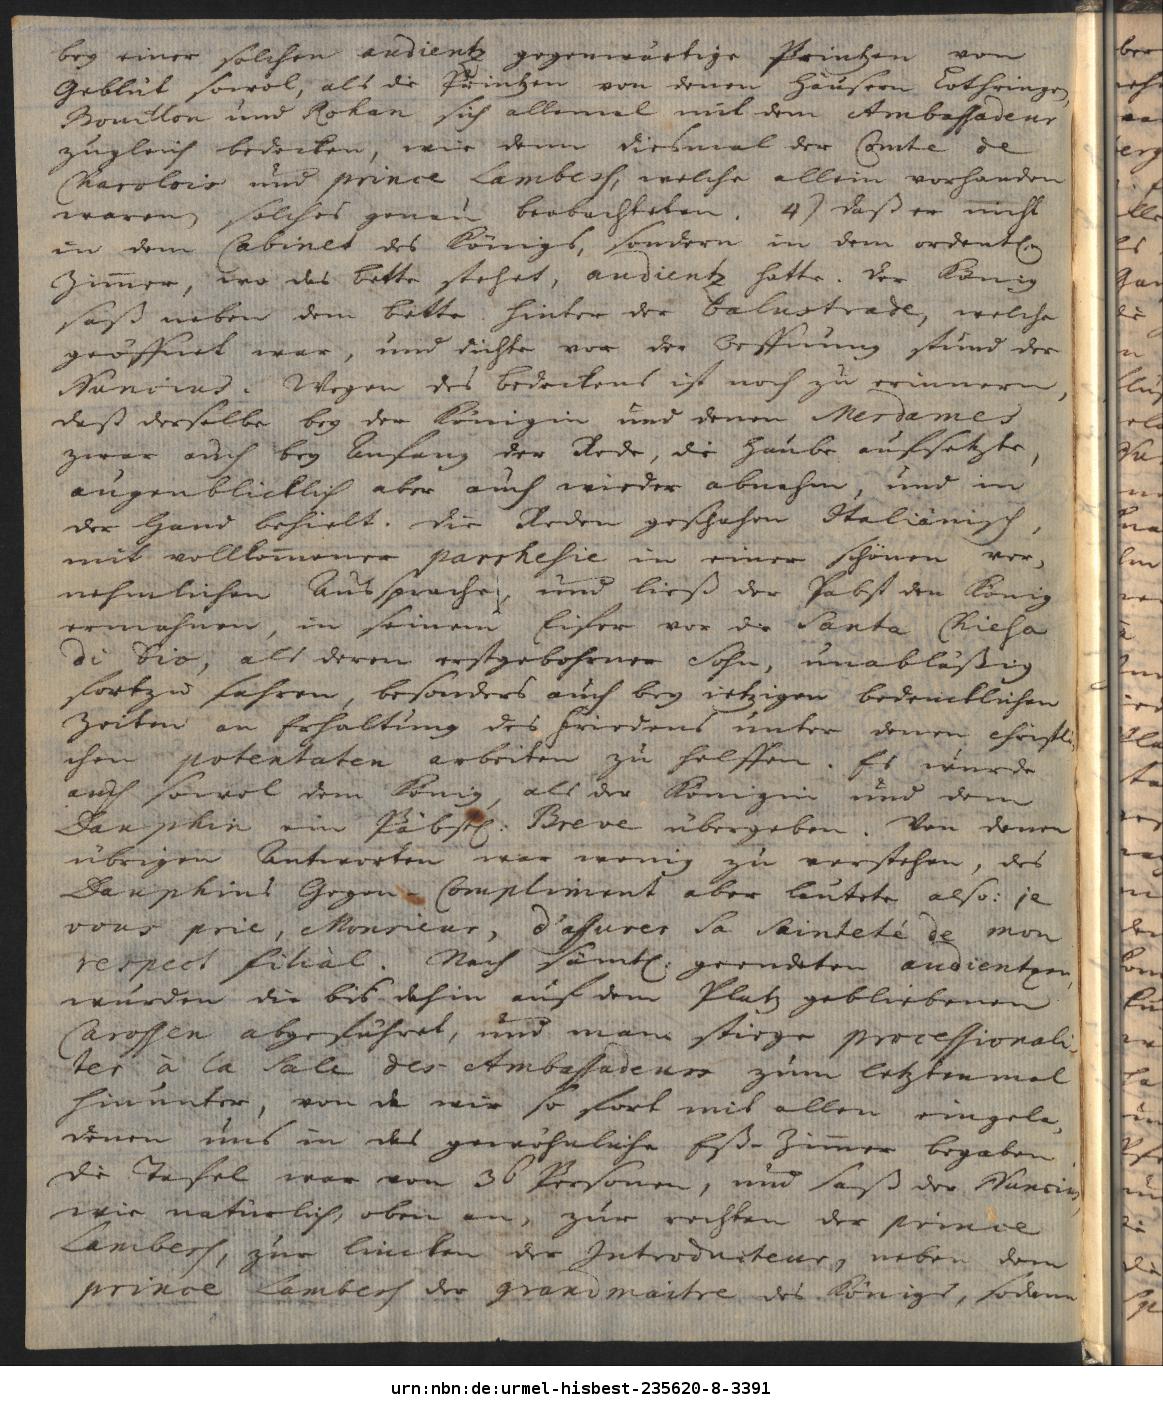 bey einer solchen audientz gegenwärtige Printzen von
Geblüt sowol, als die Printzen von denen Häusern Lothringen,
Bouillon und Rohan sich allemal mit dem Ambassadeur
zugleich bedecken, wie denn diesmal der Comte de
Charolois und prince Lambesc, welche allein vorhanden
waren, solches genau beobachteten. 4) daß er nicht
in dem Cabinet des Königs, sondern in dem ordentl.
Zim̄er, wo das bette stehet, audientz hatte. der König
saß neben dem bette hinter der balustrade, welche
geöffnet war, und dichte vor der Oeffnung stund der
Nuncius. Wegen des bedeckens ist noch zu erinnern,
daß derselbe bey der Königin und denen Mesdames
zwar auch bey Anfang der Rede, die Haube aufsetzte,
augenblicklich aber auch wieder abnahm, und in
der Hand behielt. die Reden geschahen Italiänisch,
mit vollkom̄ener parrhesie in einer schönen ver-
nehmlichen Aussprache, und ließ der Pabst den König
ermahnen, in seinem Eifer vor die Santa Chiesa
di Dio, als deren erstgebohrner Sohn, unabläßig
fortzu fahren, besonders auch bey ietzigen bedencklichen
Zeiten an Erhaltung des Friedens unter denen christli-
chen potentaten arbeiten zu helffen. Es wurde
auch sowol dem König, als der Königin und dem
Dauphin ein Päbstl: Breve übergeben. Von denen
übrigen Antworten war wenig zu verstehen, des
Dauphins Gegen-Compliment aber lautete also: je
vous prie, Monsieur, d'assurer Sa Sainteté de mon
respect filial. Nach sämtl: geendeten audientzen,
wurden die bis dahin auf dem Platz gebliebenen
Carossen abgeführet, und man stiege processionali-
ter à la Sale des Ambassadeurs zum letztenmal
hinunter, von da wir so fort mit allen eingela-
denen uns in das gewöhnliche Eß-Zim̄er begaben
die Tafel war von 36 Personen, und saß der Nuncius,
wie natürlich, oben an, zur rechten der prince
Lambesc, zur lincken der Introducteur, neben dem
prince Lambesc der grandmaitre des Königs, sodann
urn:nbn:de:urmel-hisbest-235620-8-3391